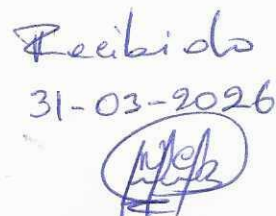 Recibido
31-03-2026